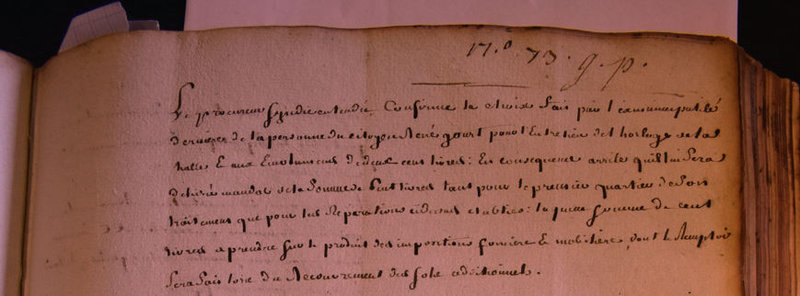 17.° 73. g. p.
Le procureur sindic entendu, Confirme le choix fait par l
dernier de la personne du citoyen René gourt pour l'Entretien de l'horloge de la
halle & aux Emolumens de deux cent livres: En consequence arrête qu'il lui sera
delivré mandat de la somme de Cent livres tant pour le premier quartier de son
traitement que pour les Reparations cidessus etablies: la quelle somme de cent
livres a prendre sur le produit des impositions fonciere & mobiliere, dont le Remploi
sera fait lors du Recouvrement des sols additionnels.